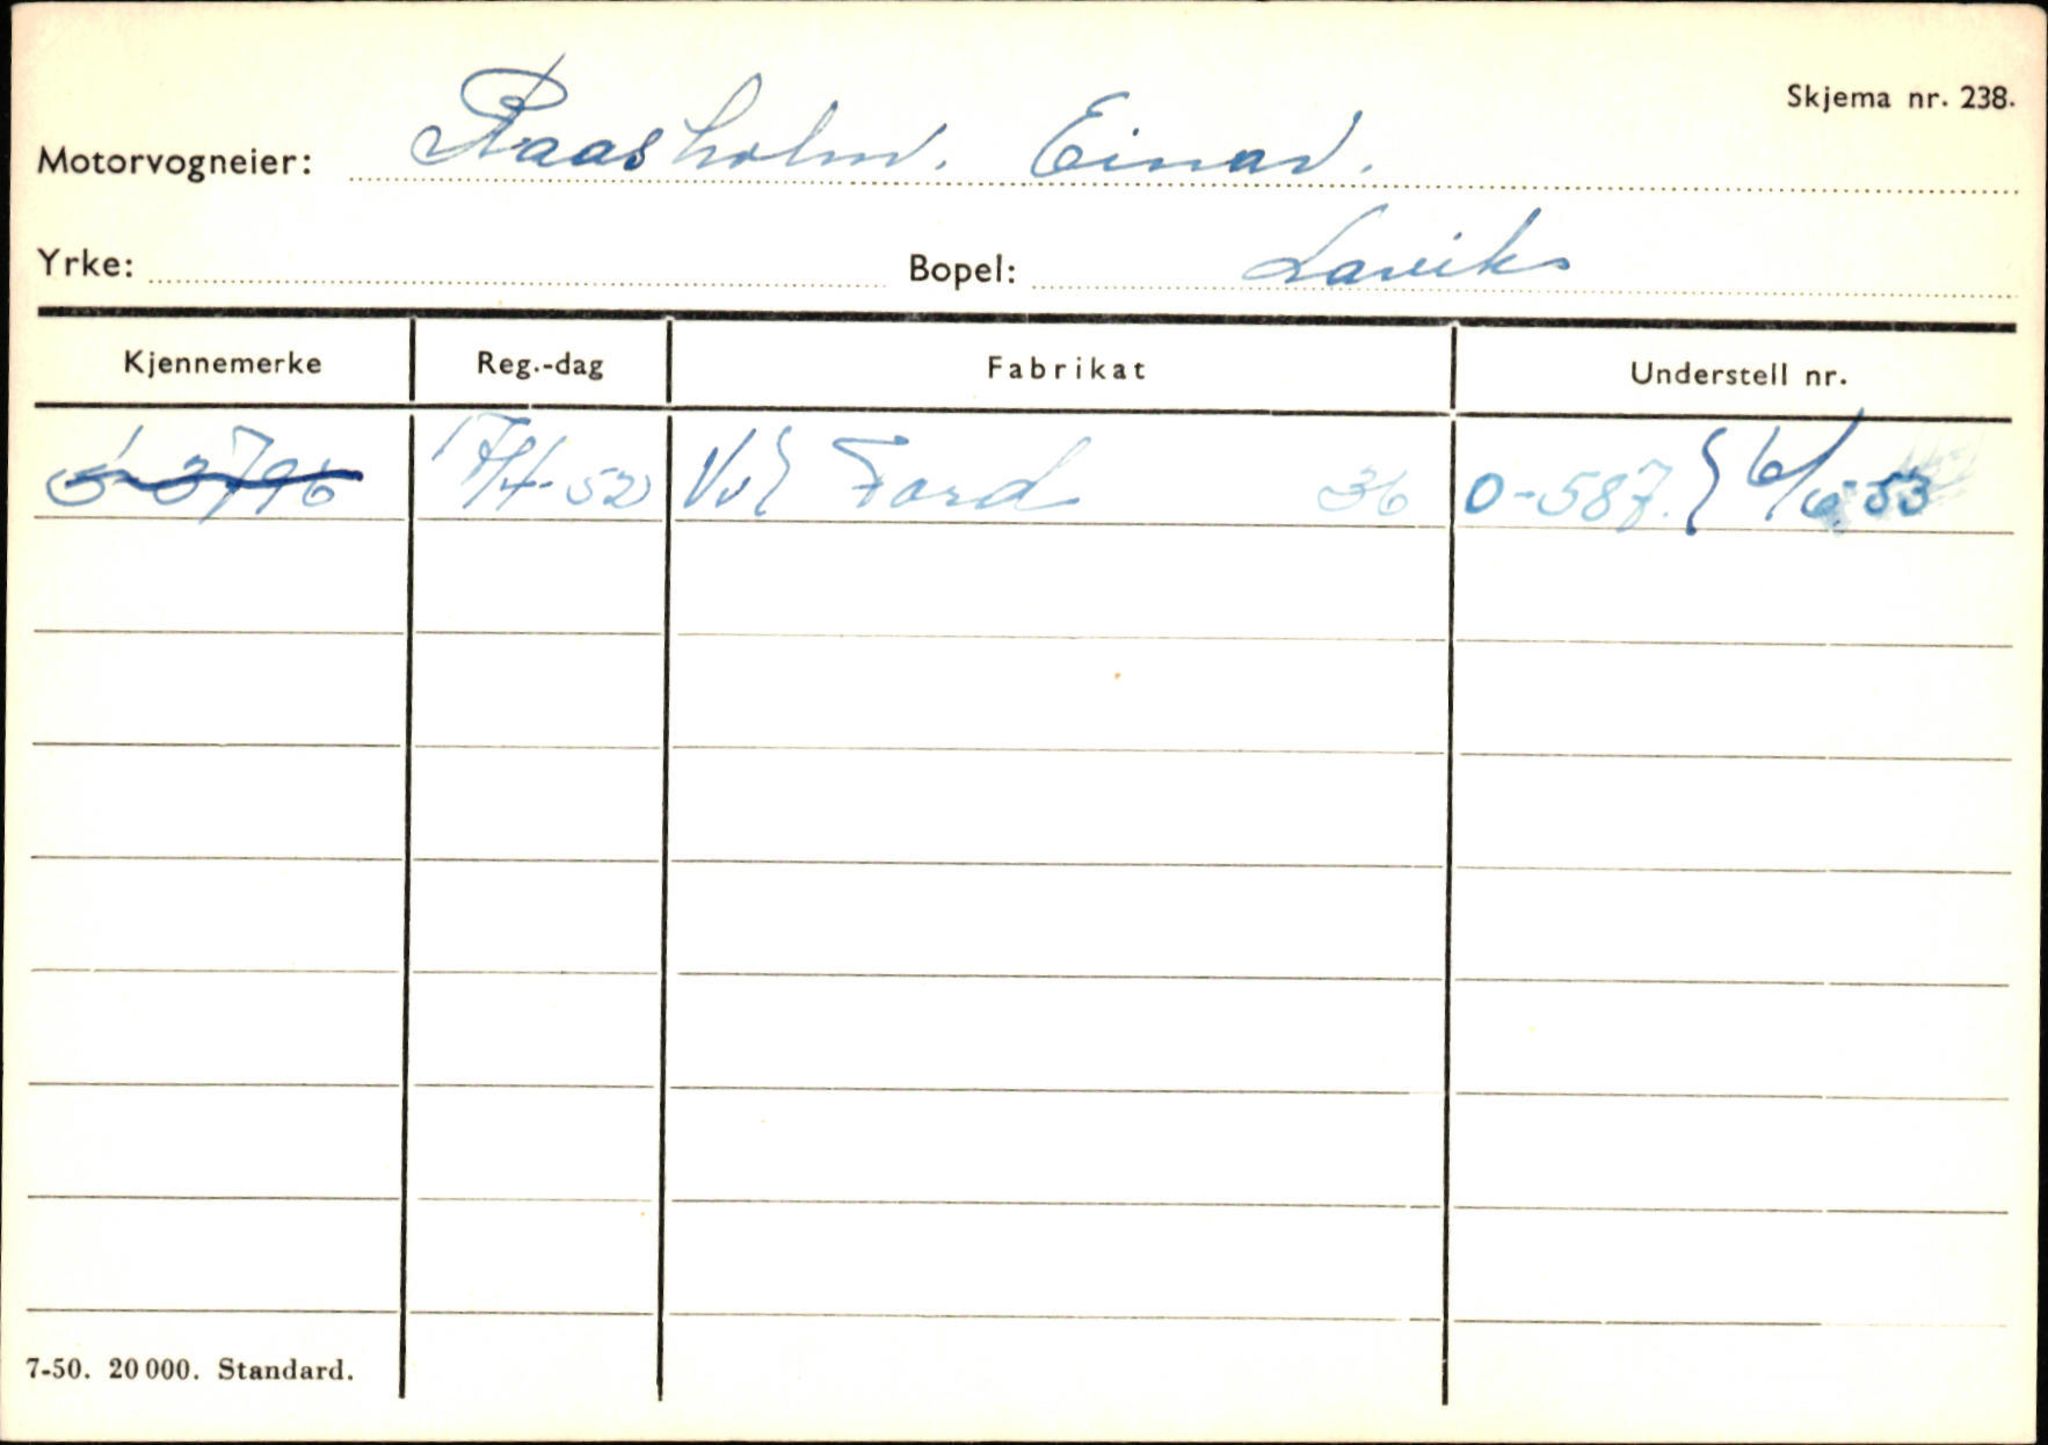 Skjema nr. 238.
Motorvogneier: Raasholm. Einar.
Yrke: Bopel: Lavik
Kjennemerke Reg.-dag Fabrikat Understell nr.
S-3796 17/4-52 Ford 36 0-587. 6/6-53
7-50. 20 000. Standard.